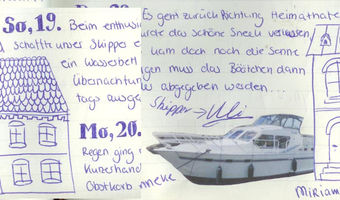 So, 19.
Beim enthus
schaffte unser Skipper e
ein Wasserbett
übernachtung
tags ausge
Mo, 20.
Regen ging
Kurzerhand
Obstkorb
Es geht zurück Richtung Heimathafe
urde das schöne Sneek verlassen
kam doch noch die Sonne
gen muss das Bötchen dann
abgegeben werden...
Skipper → Uli
nneke
Miriam